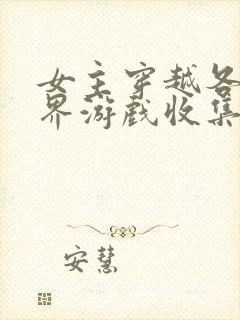 女主穿越各
界游戏收集
安慧